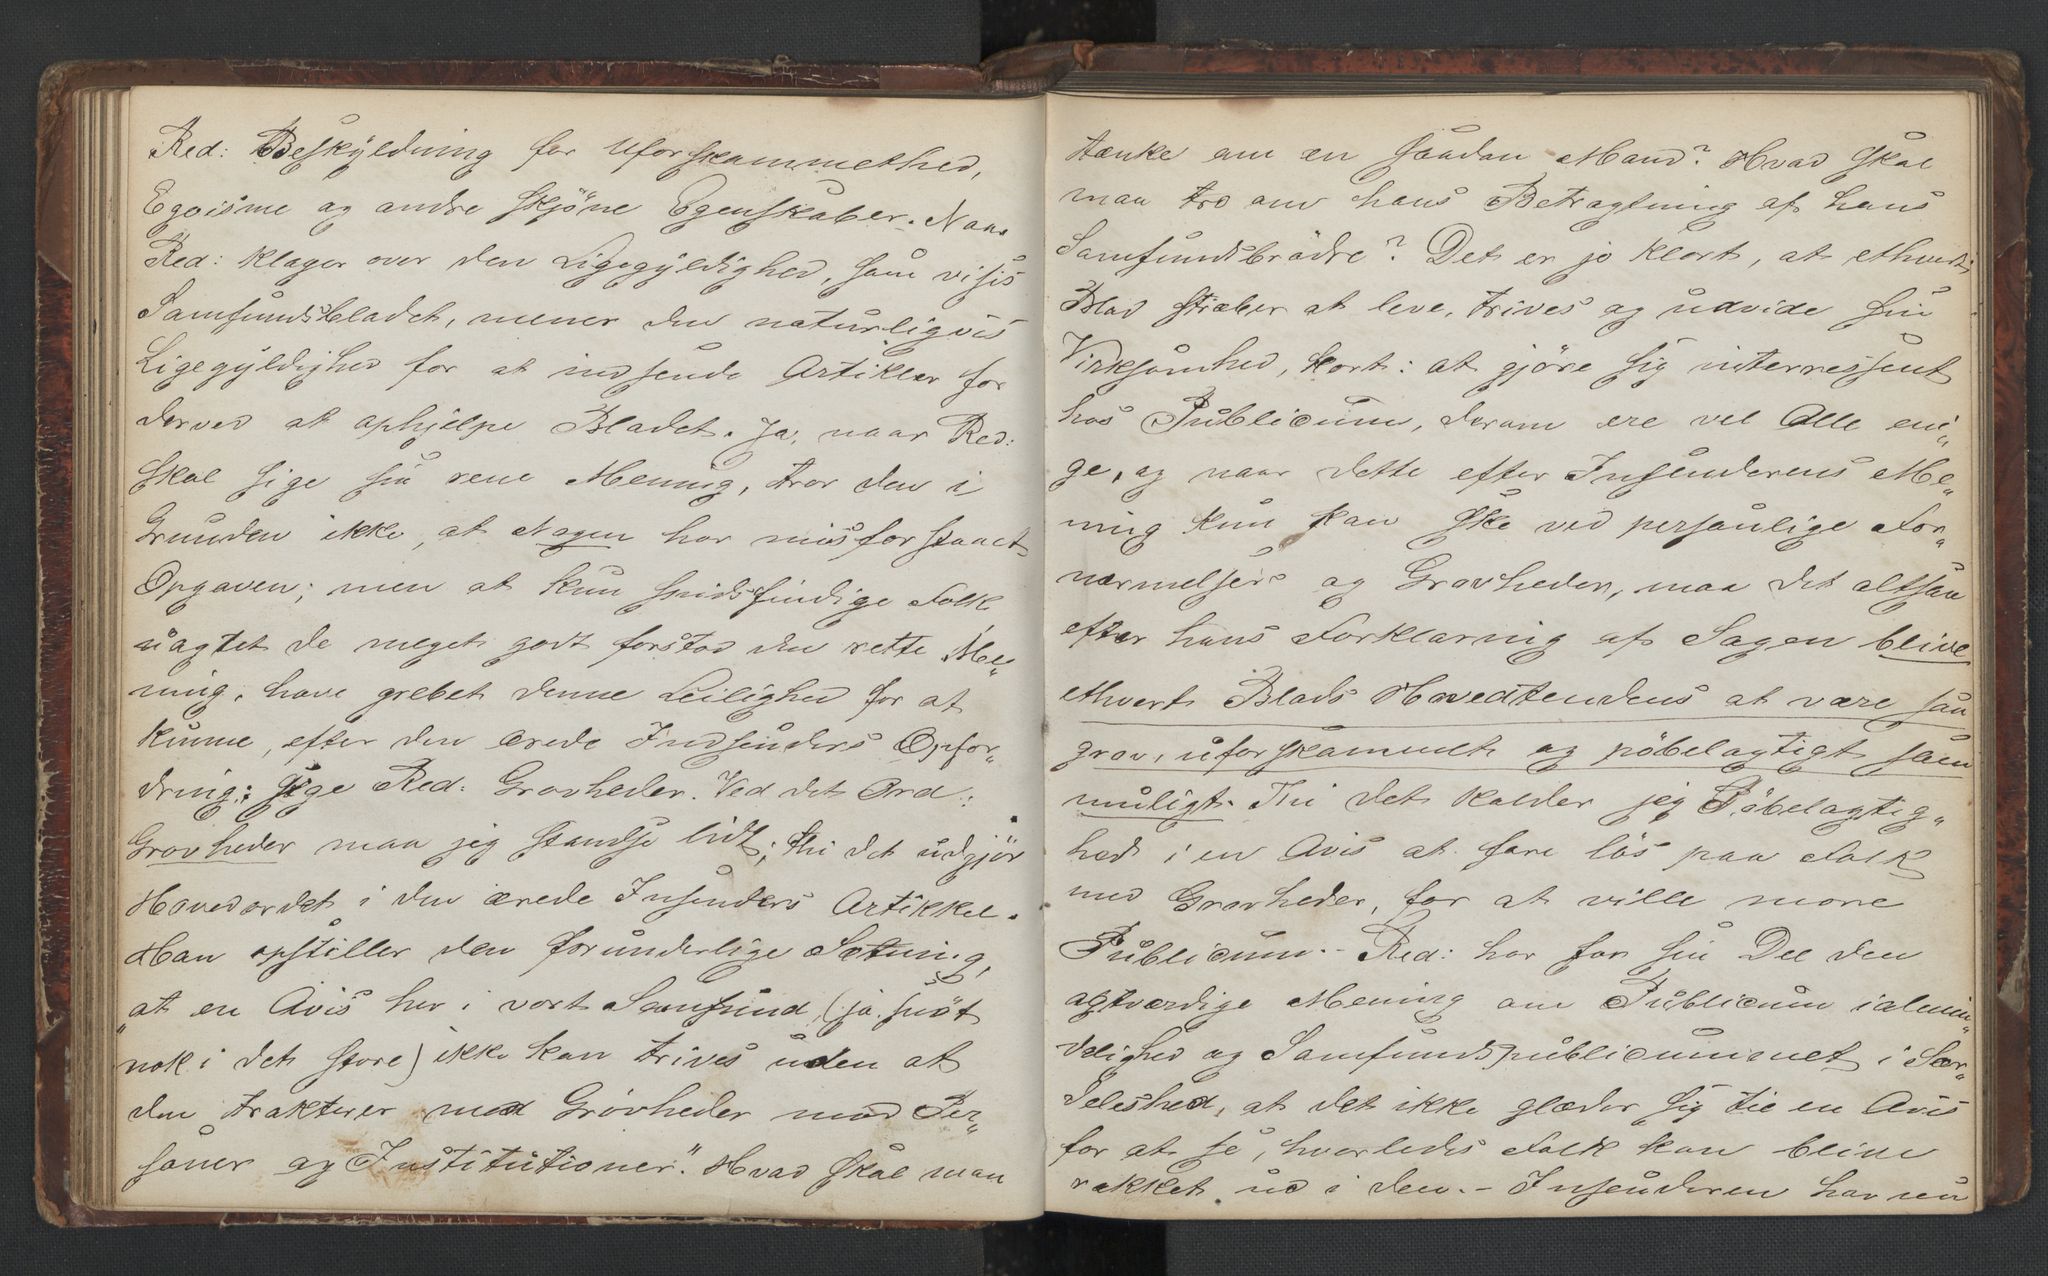 Red: Beskyldning for Uforskammethed,
Egoisme og andre skjöne Egenskaber. Naar
Red: klager over den Ligegyldighed, som vises
Samfundsbladet, mener den naturligvis
Ligegyldighed for at indsende Artikler for
derved at ophjelpe Bladet. Ja, naar Red:
skal sige sin rene Mening, tror den i
Grunden ikke, at Nogen har misforstaaet
Opgaven; men at kun spidsfindige Folk
uagtet de meget godt forstod den rette Me„
ning, have grebet denne Leilighed for at
kunne, efter den ærede Indsenders Opfor„
dring; sige Red: Grovheder. Ved det Ord:
Grovheder maa jeg standse lidt; thi det udgjör
Hovedordet i den ærede Insenders Artikkel.
Han opstiller den forunderlige Sætning,
„at en Avis her i vort Samfund (ja snöt
nok i det store) ikke kan trives uden at
den trakterer med Grovheder mod Per„
soner og Institutioner." Hvad skal man
tænke om en saadan Mand? Hvad skal
maa tro om hans Betragtning af hans
Samfundsbrödre? Det er jo klart, at ethvert
Blad stræber at leve, trives og udvide sin
Virksomhed, kort: at gjöre sig interressent
hos Publicum, derom ere vel Alle eni„
ge, og naar dette efter Insenderens Me„
ning kun kan ske ved personlige For„
nærmelser og Grovheder, maa det altsaa
efter hans Forklaring af Sagen blive
ethvert Blads Hovedtendens at være saa
grov, uforskammet og pöbelagtigt som
muligt. Thi det kalder jeg Pöbelagtig„
hed i en Avis at fare lös paa Folk
med Grovheder, for at ville more
Publicum. – Red: har for sin Del den
agtværdige Mening om Publicum i almin„
delighed og Samfundspublicummet i Sær„
deleshed, at det ikke glæder sig til en Avis
for at se, hvorledes Folk kan blive
rakket ud i den. – Insenderen har nu